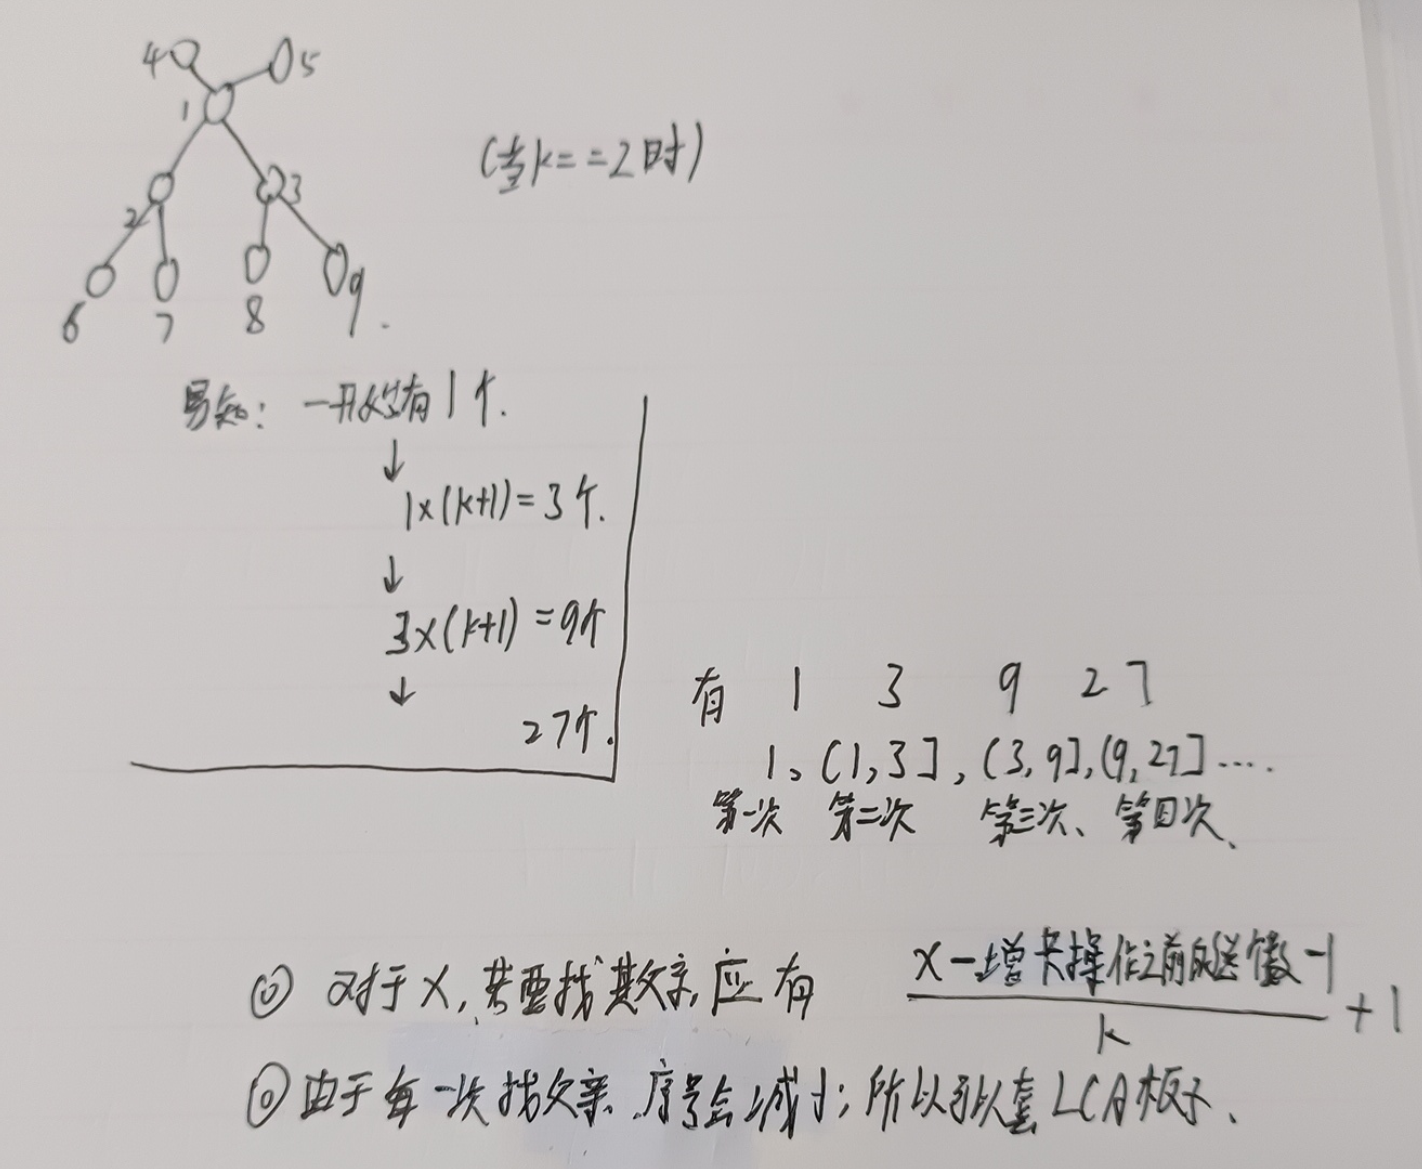 4 5
1
(当k==2时)
2 3
6 7 8 9.
易知: 一开始有1个.
↓
1×(k+1)=3个.
↓
3×(k+1)=9个
↓
27个.
有 1 3 9 27
1、(1,3], (3,9], (9,27]....
第一次 第二次 第三次、第四次、
① 对于x,若要找其父亲,应有 x-增长操作之前的总个数-1
k
+1
② 由于每一次找父亲,序号会减小;所以可以套LCA板子、